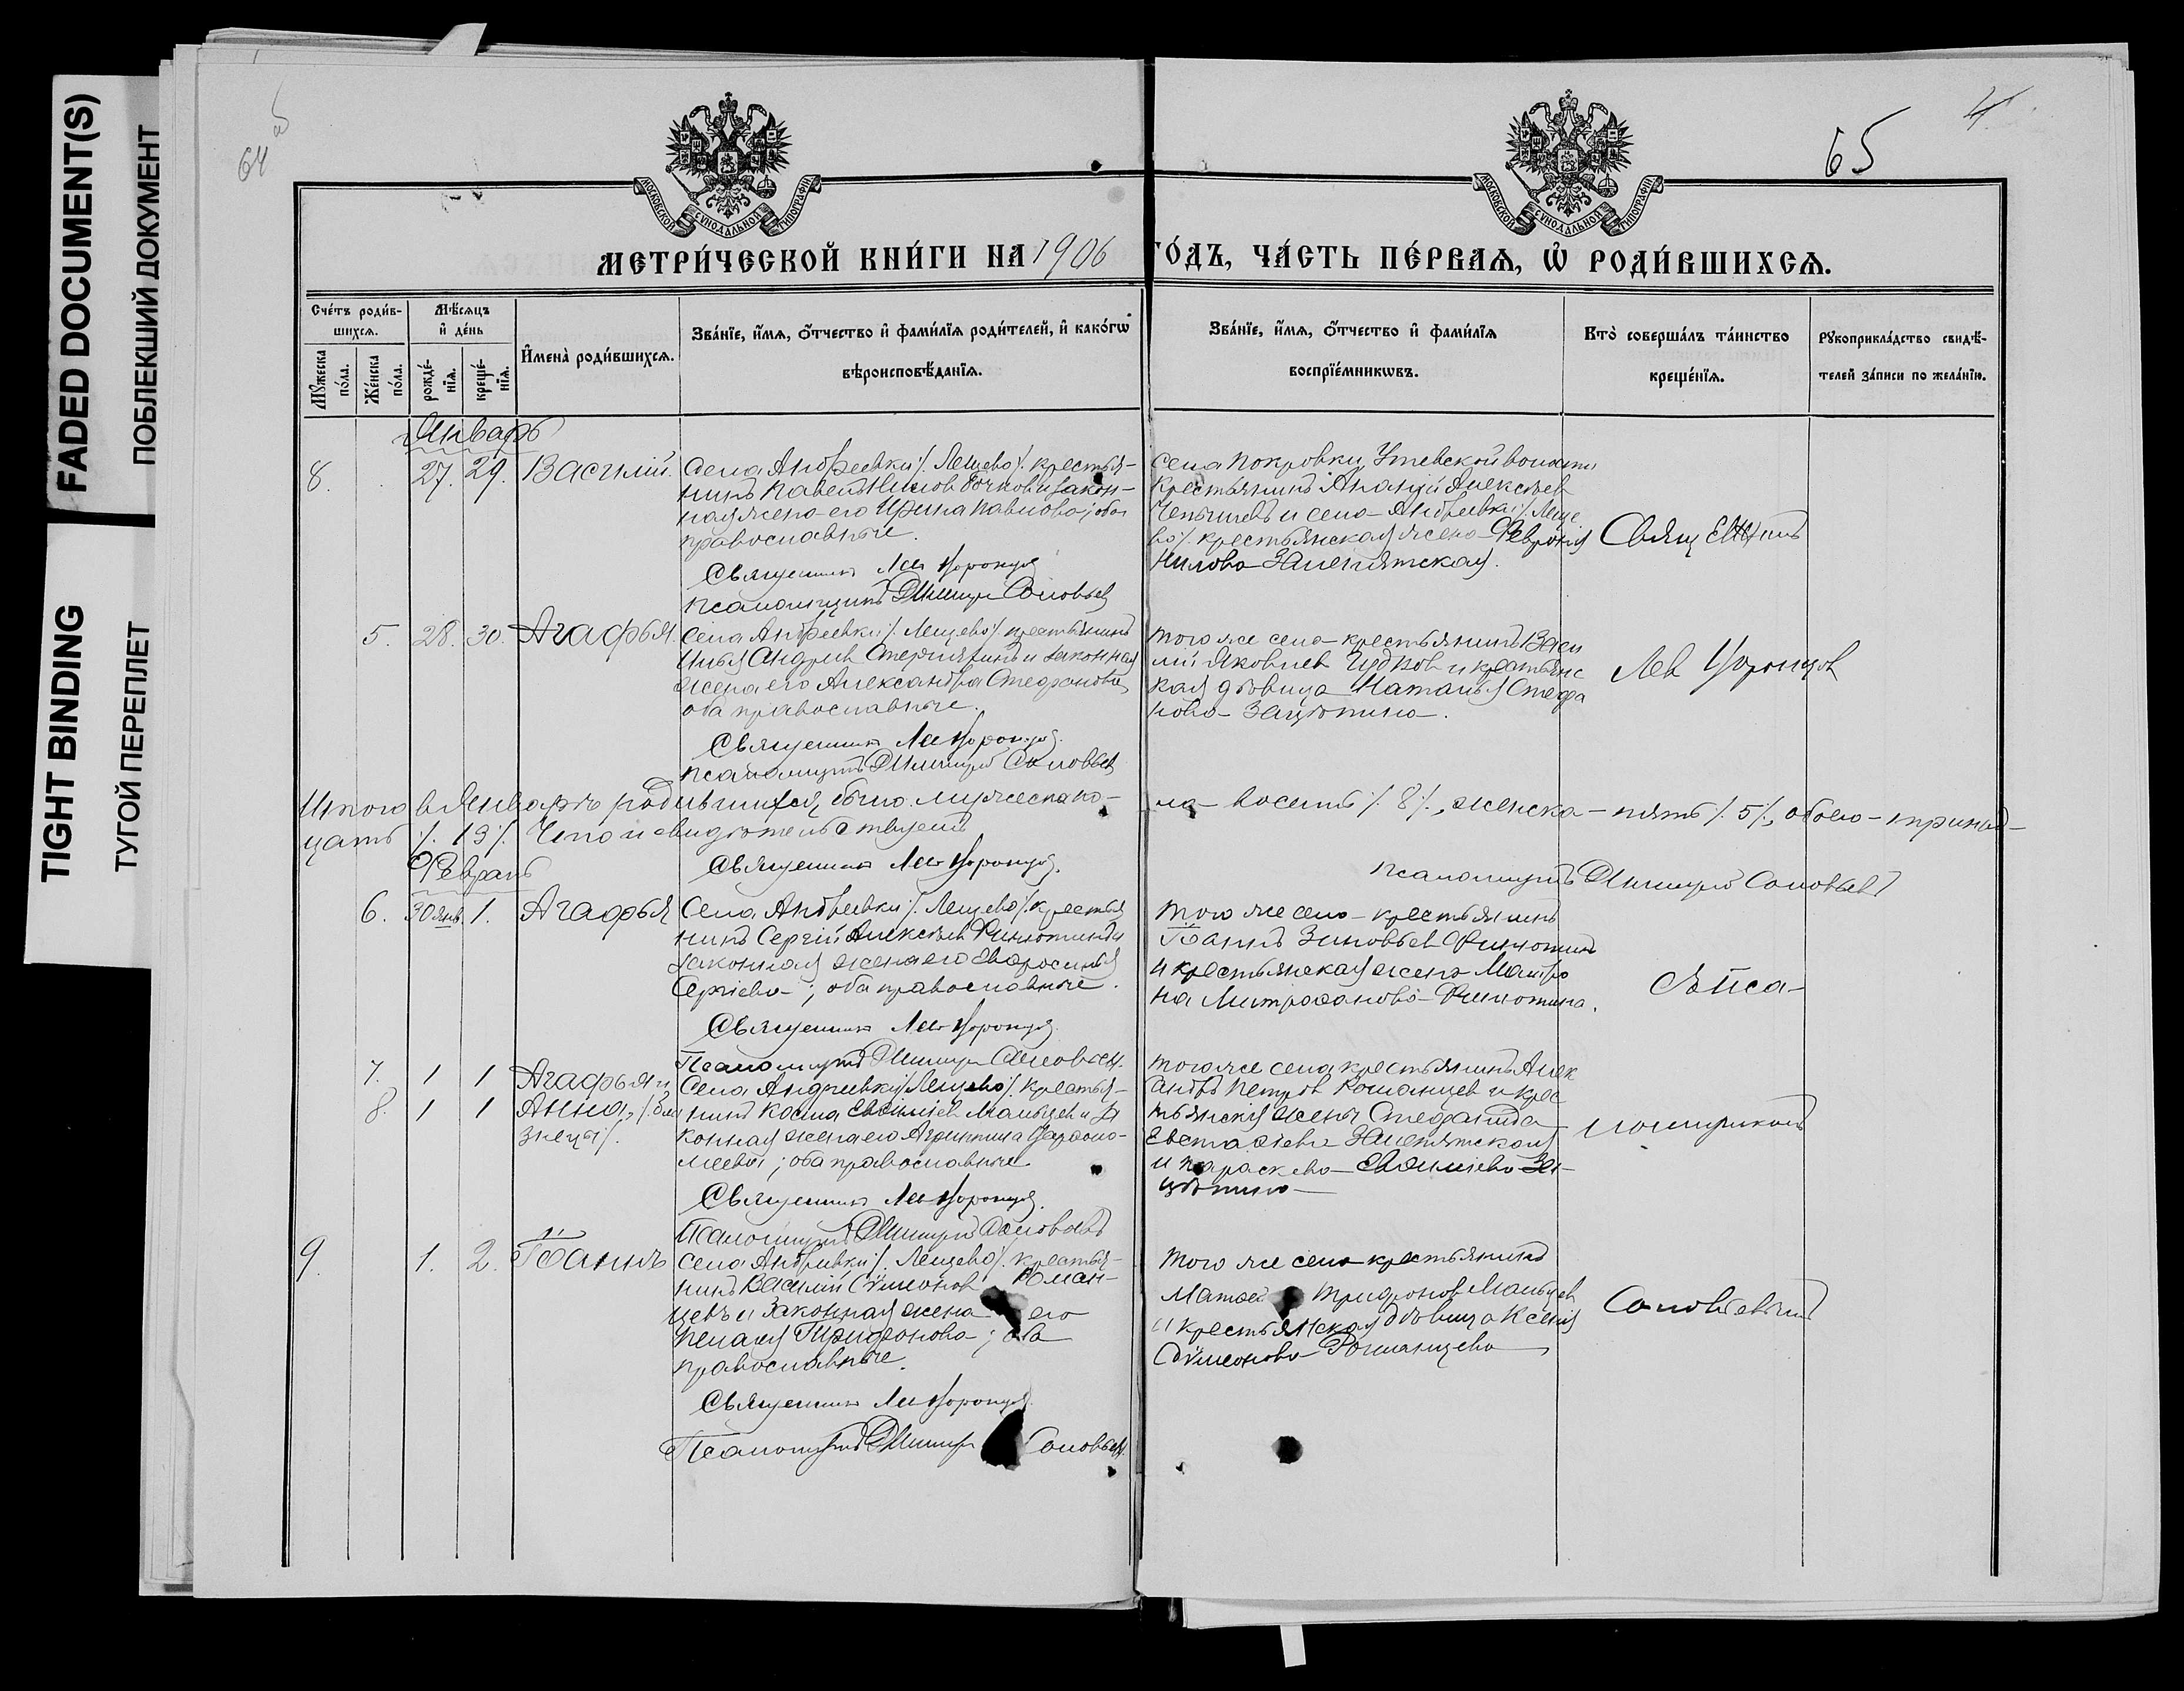 FADED DOCUMENT(S)
ПОБЛЕКШИЙ ДОКУМЕНТ
TIGHT BINDING
ТУГОЙ ПЕРЕПЛЕТ
64 об
65
4
МОСКОВСКОЙ СѴНОДАЛЬНОЙ ТИПОГРАФІИ
МОСКОВСКОЙ СѴНОДАЛЬНОЙ ТИПОГРАФІИ
МЕТРИ́ЧЕСКОЙ КНИ́ГИ НА 1906 ГО́ДЪ, ЧА́СТЬ ПЕ́РВАѦ, Ѡ҆ РОДИ́ВШИХСѦ.
Сче́тъ роди́в-
шихсѧ.
Мꙋ́жеска по́ла.
Же́нска по́ла.
Мѣ́сѧцъ
и҆ де́нь
рожде́-
нїѧ.
креще́-
нїѧ.
И҆мена̀ роди́вшихсѧ.
Зва́нїе, и҆́мѧ, ѻ҆́тчество и҆ фами́лїѧ роди́телей, и҆ како́гѡ
вѣроисповѣ́данїѧ.
Зва́нїе, и҆́мѧ, ѻ҆́тчество и҆ фами́лїѧ
воспрїе́мникѡвъ.
Кто̀ соверша́лъ та́инство
креще́нїѧ.
Рꙋкоприкла́дство свидѣ́-
телей за́писи по жела́нїю.
Январь
8. 27. 29. Василій.
Села Андреевки /. Лещево /. крестья-
нинъ Павелъ Нилов Бочков и закон-
ная жена его Ирина Павлова; оба
православные.
Священник Лев Воронцов
Псаломщикъ Димитри Соловьев
Села Покровки, Утевской волости
крестьянинъ Алексѣев
и села Андреевки /. Леще
во /. крестьянская жена Феврония
Нилова Заплятская.
Свящ
5. 28. 30. Агафья.
Села Андреевки /. Лещево /. крестьянинъ
Илья Андреев и законная
жена его Александра Стефанова
оба православные.
Священник Лев Воронцов.
Псаломщикъ Димитрій Соловьев
Того же села крестьянинъ Васи
лій Яковлев Гудков и крестьянс
кая дѣвица Наталья Стефа
нова Зацѣпина.
Лев Воронцов
Итого в Январѣ родившихся было мужеска по-
ла восемь /. 8 /., женска пять /. 5 /., обоего тринад-
цать /. 13 /. Что и свидѣтельствуемъ
Священник Лев Воронцов.
Псаломщикъ Димитрій Соловьев
Февраль
6. 30 янв. 1. Агафья
Села Андреевки /. Лещево /. крестья
нинъ Сергій Алексѣев Филютинъ и
законная жена его Евфросинья
Сергіева; оба православные.
Священник Лев Воронцов
Псаломщикъ Димитри Соловьев.
Того же села крестьянинъ
Іоаннъ Зиновьев Филютинъ
и крестьянская жена Матро
на Митрофанова Филютина.
съ Пса-
7. 1 1 Агафья и
8. 1 1 Анна, /. бли
знецы /.
Села Андреевки /. Лещево /. крестья-
нинъ Косма Евѳиміев Мальцев и за
конная жена его Агриппина Варѳоло-
меева; оба православные.
Священник Лев Воронцов.
Псаломщикъ Димитрій Соловьевъ
Того же села крестьянинъ Алек
сандръ Петров Романцев и крес
тьянскія жены Стефанида
Евстафіева Заплятская
и Параскева Евѳиміева За-
цѣпина
ломщиком
9. 1. 2. Іоаннъ
Села Андреевки /. Лещево /. крестья-
нинъ Василій Сѵмеонов Роман-
цевъ и законная жена его
Пелагея Трифонова; оба
православные.
Священник Лев Воронцов
Псаломщикъ Димитри Соловьев.
Того же села крестьянинъ
Матѳей Трифонов Мальцев
и крестьянская дѣвица Ксенія
Сѵмеонова Романцева
Соловьевым